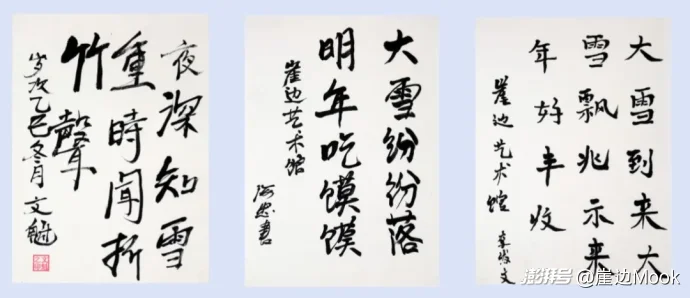 夜深知雪
重時聞折
竹聲
岁次乙巳冬月 文魁
大雪纷纷落
明年吃馍馍
崖边艺术馆
大雪到来大
雪飘兆示来
年好丰收
崖边艺术馆
澎湃号 @崖边Mook